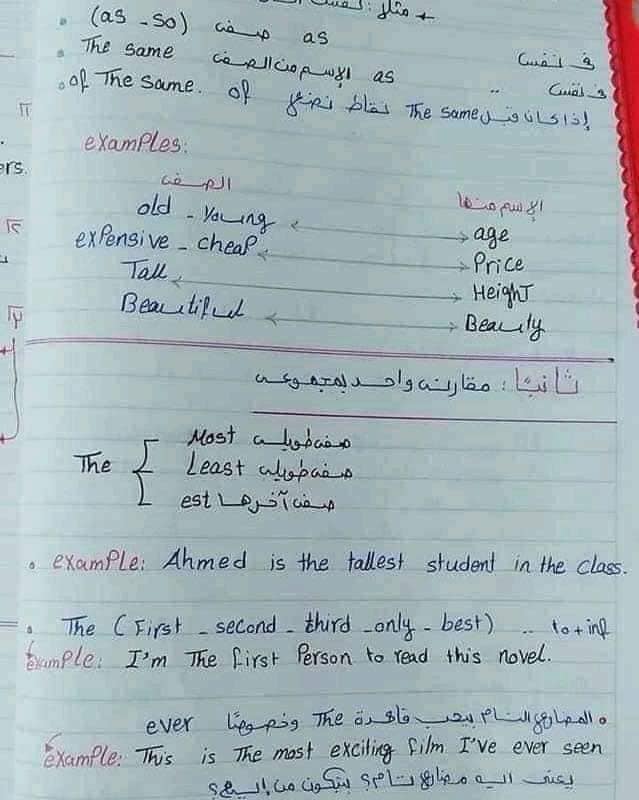 مثل: لنفس
. (as - so) صفه as
. The same الإسم من الصفه as في نفس
. of The same. of إذا كان قبل The same نقاط نضع .. في نفس
examples:
الصفه الإسم منها
old - young age
expensive - cheap Price
Tall Height
Beautiful Beauty
ثانيًا: مقارنة واحد بمجموعه
Most صفه طويله
The Least صفه طويله
est صفه آخرها
. example: Ahmed is the tallest student in the class.
. The (First - second - third - only - best) .. to + inf
example: I'm The first Person to read this novel.
. المضارع التام يحب قاعدة The وخصوصًا ever
example: This is The most exciting film I've ever seen
يعني اليه مضارع تام؟ بيتكون من إيه؟
ers.